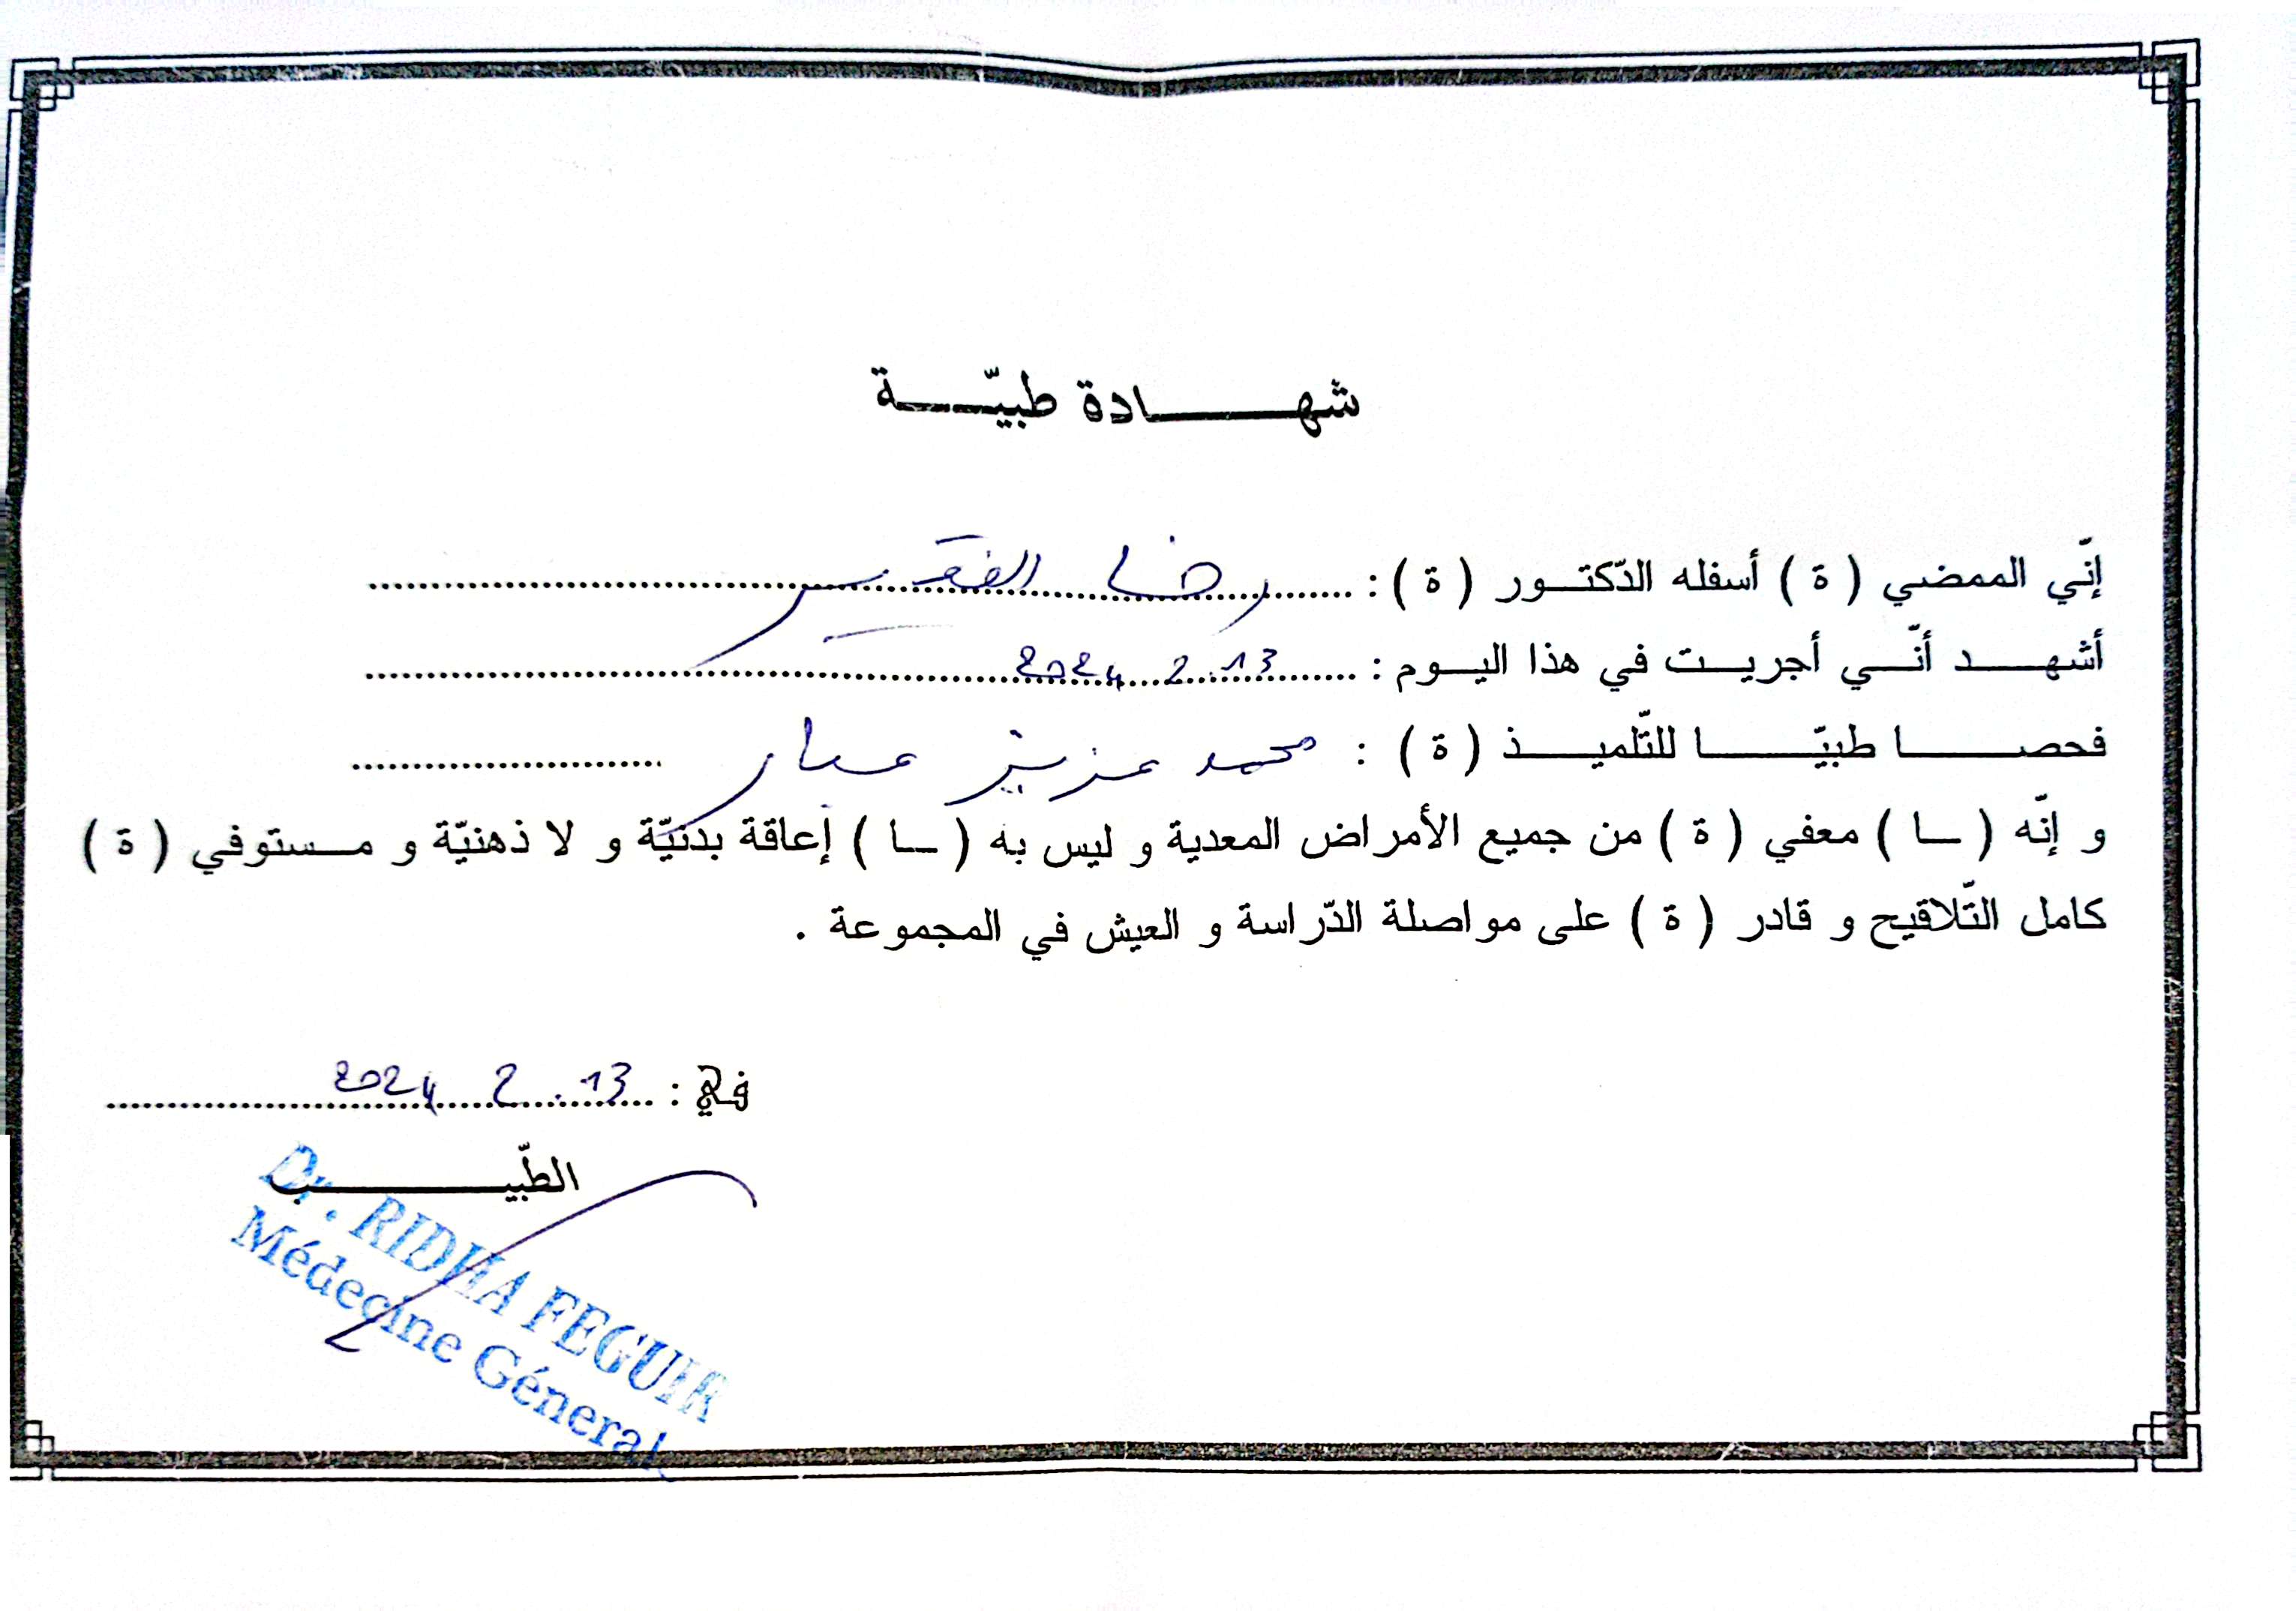 شهادة طبيّة
إنّي الممضي ( ة ) أسفله الدّكتور ( ة ) : رضا الفقير
أشهد أنّي أجريت في هذا اليوم : 13.2.2024
فحصا طبيّا للتّلميذ ( ة ) : محمد عزيز
و إنّه ( ـا ) معفي ( ة ) من جميع الأمراض المعدية و ليس به ( ـا ) إعاقة بدنيّة و لا ذهنيّة و مستوفي ( ة )
كامل التّلاقيح و قادر ( ة ) على مواصلة الدّراسة و العيش في المجموعة .
في : 13.2.2024
الطّبيب
Dr. RIDHA FEGUIR
Médecine Géneral